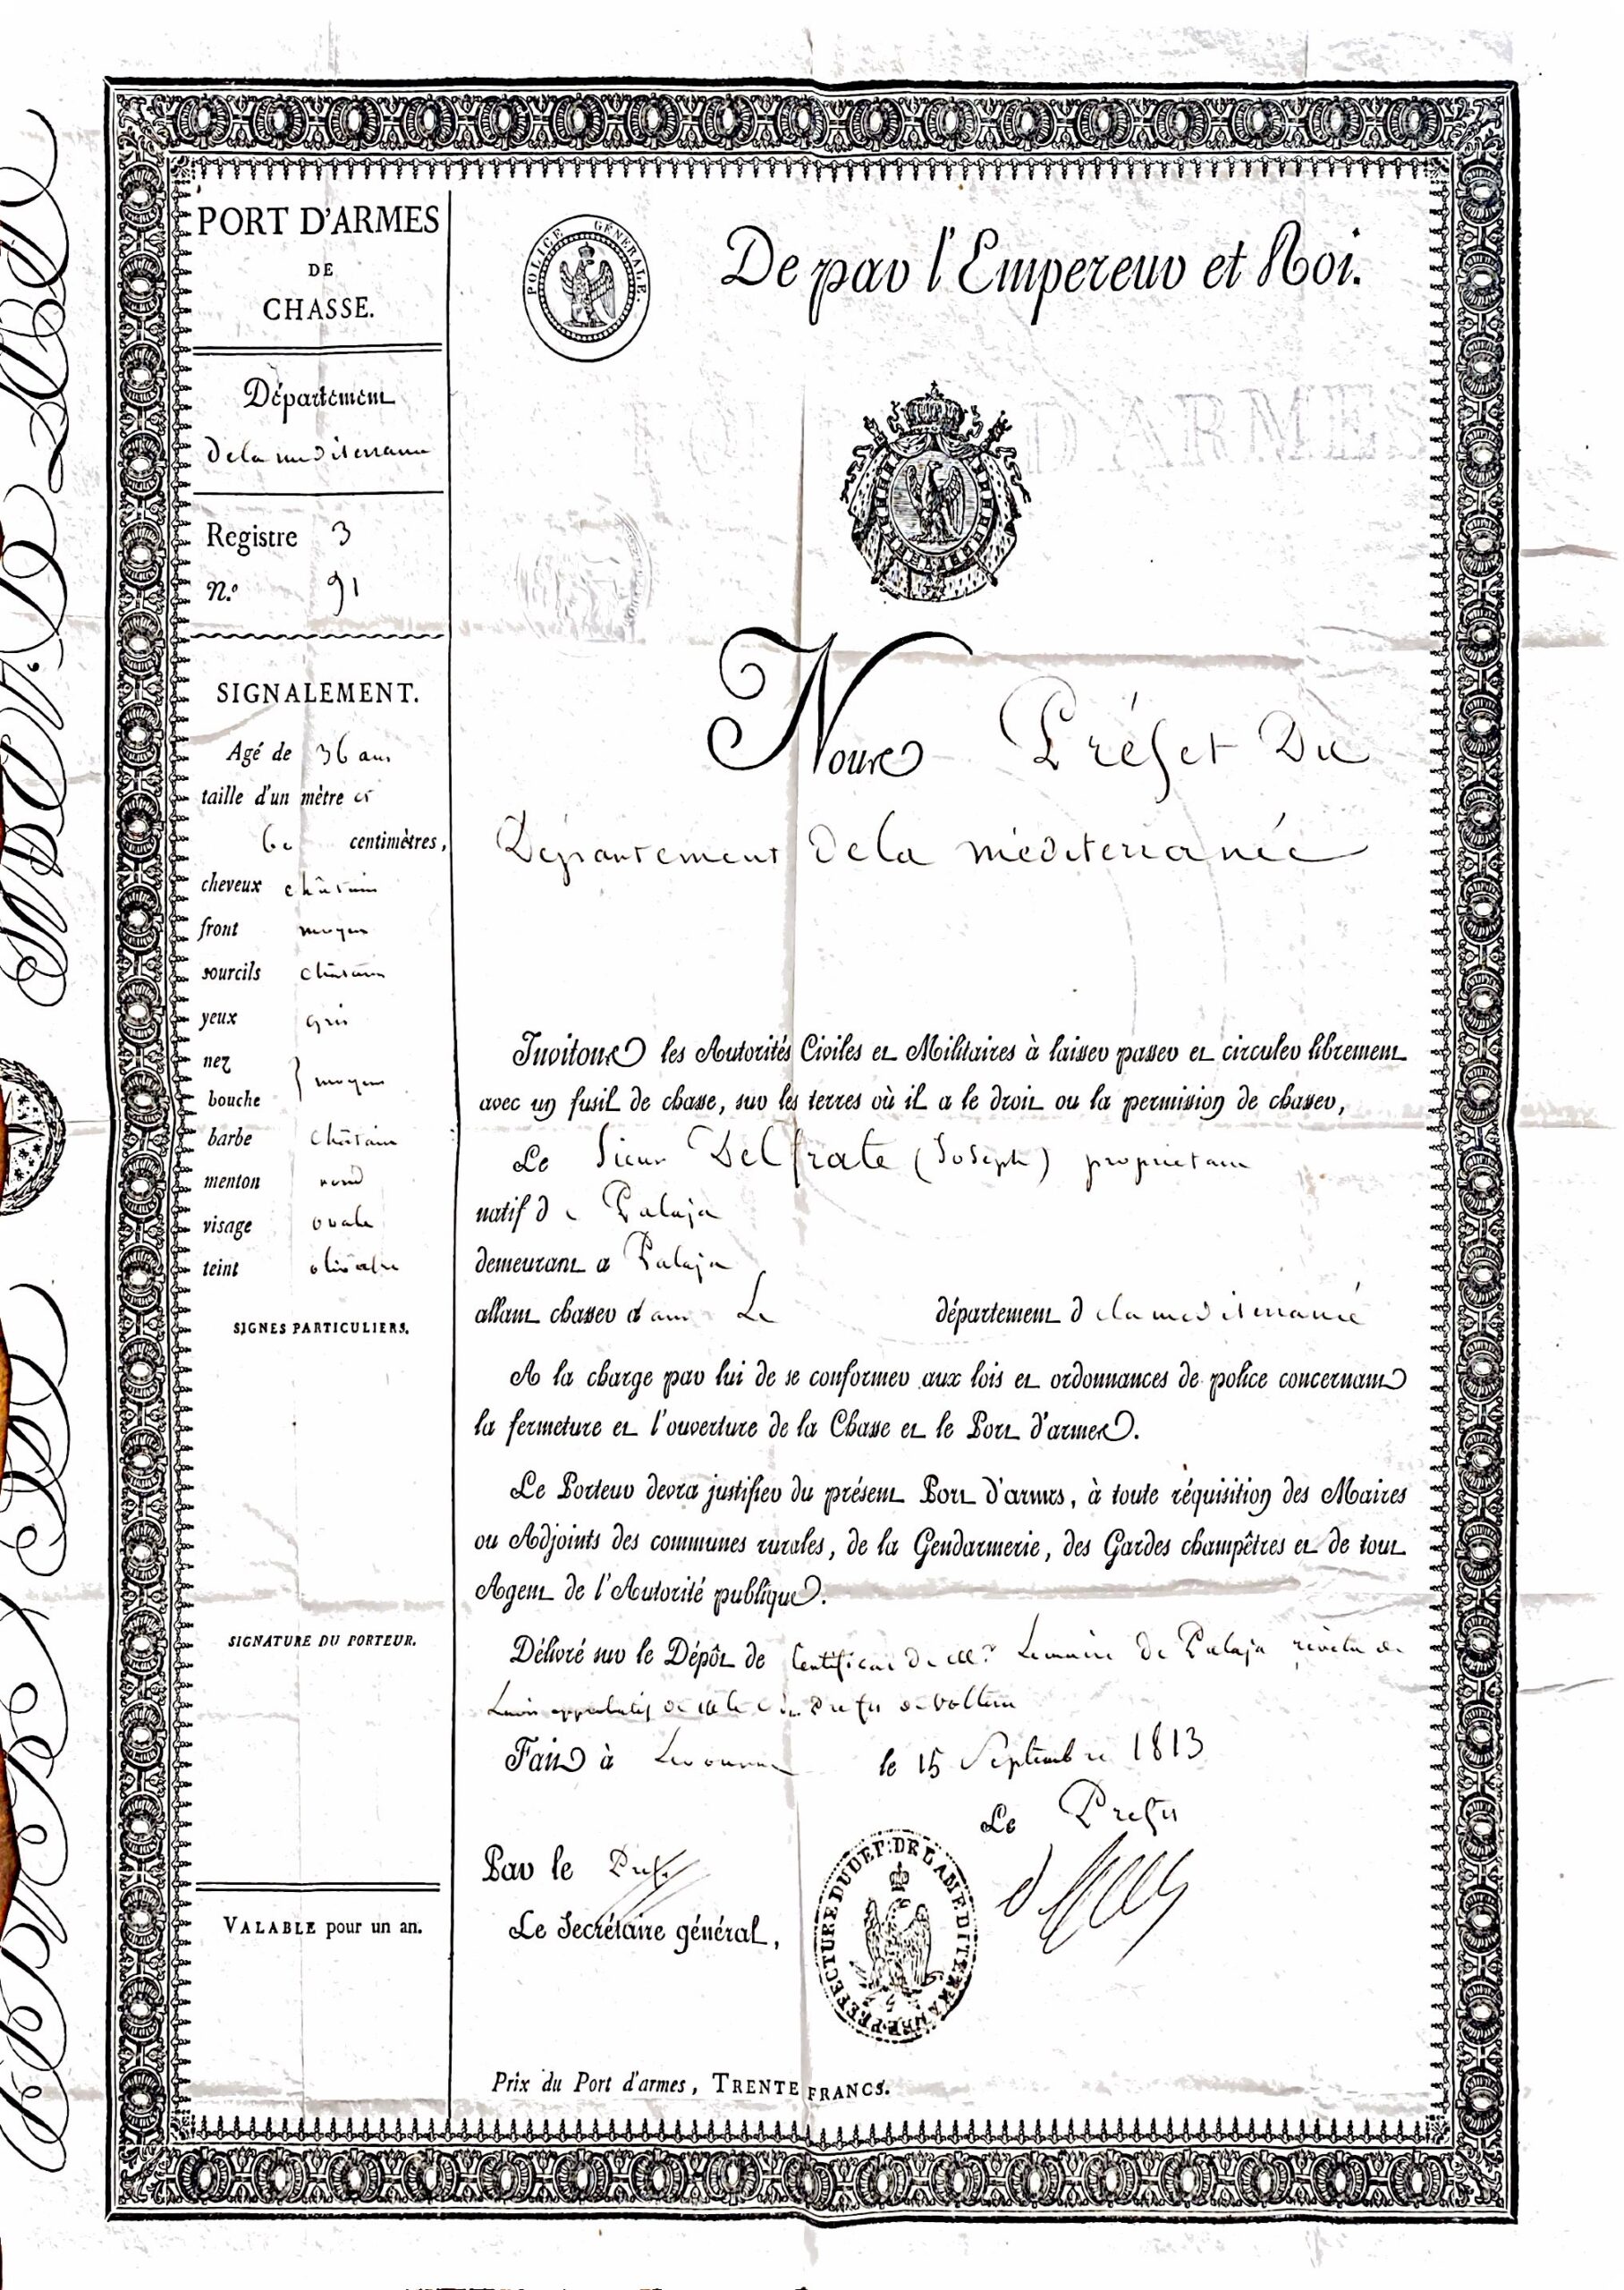 PORT D'ARMES
DE
CHASSE.
Département
de la mediterranée
Registre 3
N.º 91
SIGNALEMENT.
Agé de 36 ans
taille d'un mètre et
60 centimètres,
cheveux châtain
front moyen
sourcils châtain
yeux gris
nez
bouche } moyen
barbe châtain
menton rond
visage ovale
teint olivâtre
SIGNES PARTICULIERS.
SIGNATURE DU PORTEUR.
VALABLE pour un an.
POLICE GÉNÉRALE.
De par l'Empereur et Roi.
PORT D'ARMES
Nous Préfet Du
Département de la méditerranée
Invitons les Autorités Civiles et Militaires à laisser passer et circuler librement
avec un fusil de chasse, sur les terres où il a le droit ou la permission de chasser,
Le Sieur Del frate (Joseph) proprietaire
natif de Palaja
demeurant a Palaja
allant chasser dans Le département de la mediterranée
A la charge par lui de se conformer aux lois et ordonnances de police concernant
la fermeture et l'ouverture de la Chasse et le Port d'armes.
Le Porteur devra justifier du présent Port d'armes, à toute réquisition des Maires
ou Adjoints des communes rurales, de la Gendarmerie, des Gardes champêtres et de tout
Agent de l'Autorité publique.
Délivré sur le Dépôt de Certificat de Mr Lemaire de Palaja revetu de
de Prefet de Volterre
Fait à Livourne le 15 Septembre 1813
Le Prefet
Par le Prefet
Le Secrétaire général,
PREFECTURE DU DEP: DE LA MEDITERRANEE
Prix du Port d'armes, TRENTE FRANCS.